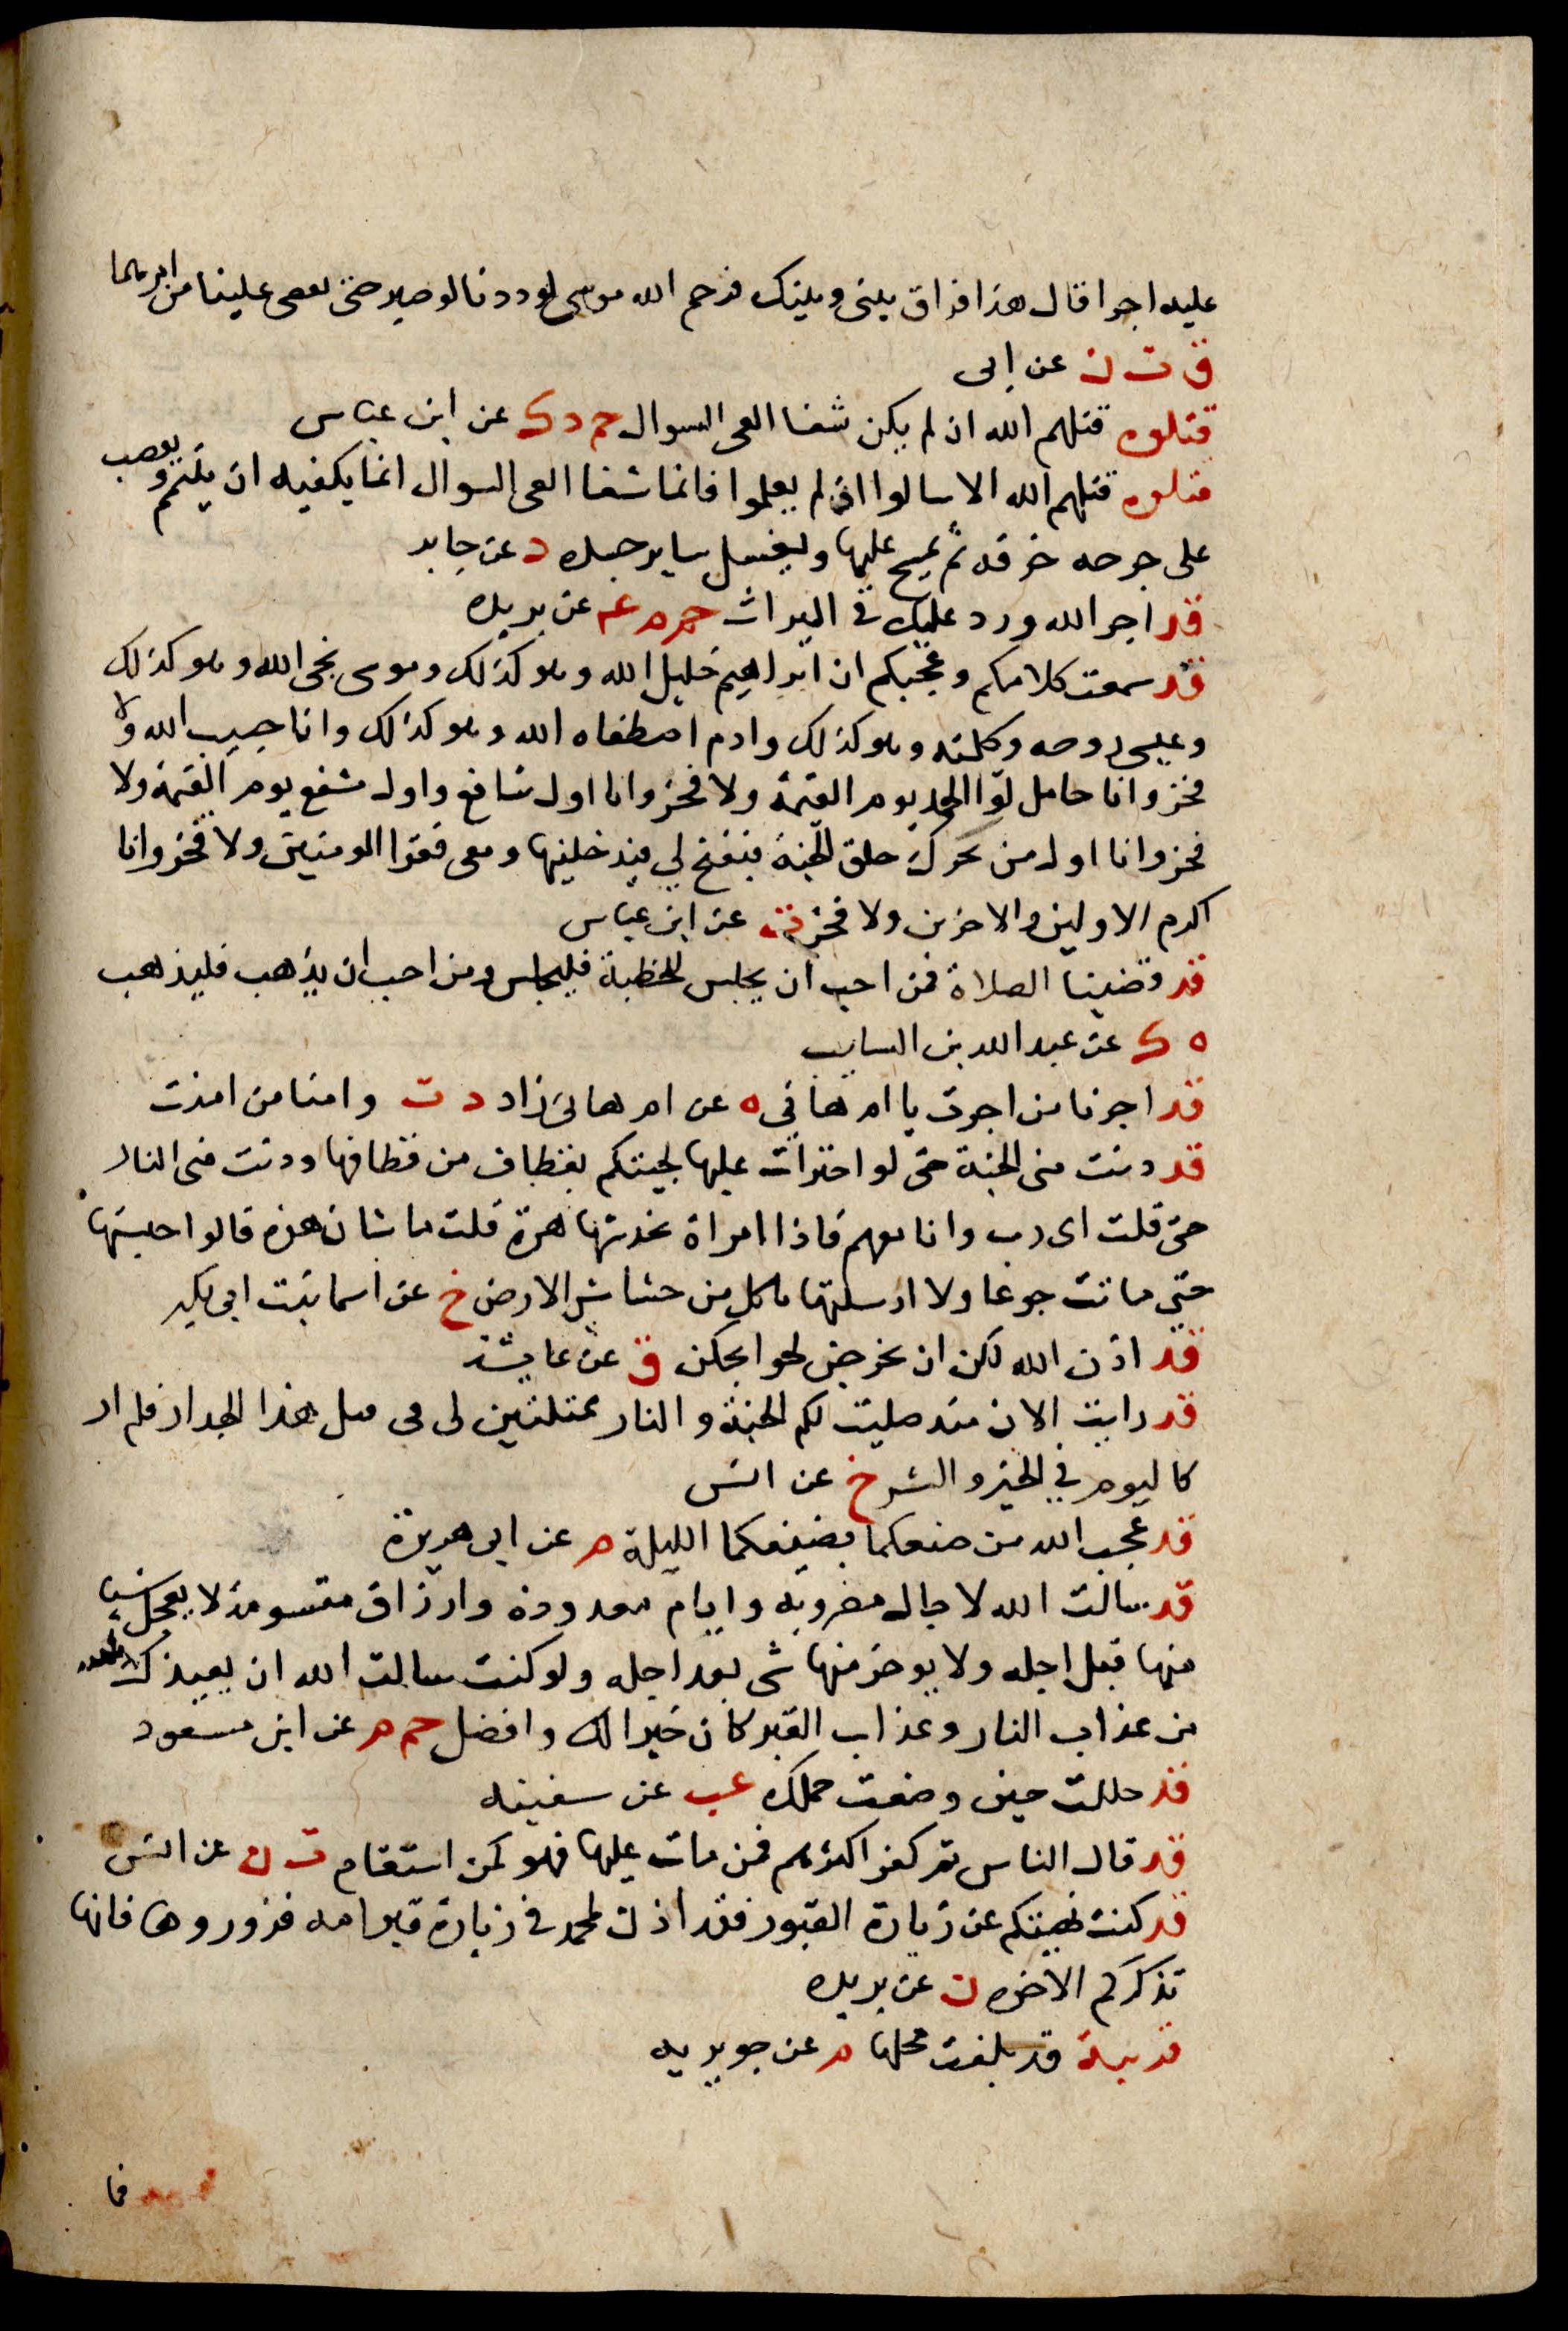 عليه اجرا قال هذا فراق بينى وبينك فرحم الله موسى لوددنا لو صبر حتى يقص علينا من امرهما
ق ت ن عن ابى
قتلوه قتلهم الله ان لم يكن شفا العى السوال حم د ك عن ابن عباس
قتلوه قتلهم الله الا سالوا اذ لم يعلموا فانما شفا العى السوال انما يكفيه ان يتيمم ويعصب
على جرحه خرقه ثم يمسح عليها ويغسل ساير جسده د عن جابر
قد اجر الله ورد عليك في الميراث حم م عه عن بريده
قد سمعت كلامكم وعجبكم ان ابراهيم خليل الله وهو كذلك وموسى نجى الله وهو كذلك
وعيسى روحه وكلمته وهو كذلك وادم اصطفاه الله وهو كذلك وانا حبيب الله ولا
فخر وانا حامل لوا الحمد يوم القيمة ولا فخر وانا اول شافع واول مشفع يوم القيمة ولا
فخر وانا اول من يحرك حلق الجنة فيفتح لي فيدخلنيها ومعى فقرا المومنين ولا فخر وانا
اكرم الاولين والاخرين ولا فخر ت عن ابن عباس
قد قضينا الصلاة فمن احب ان يجلس للخطبة فليجلس ومن احب ان يذهب فليذهب
ه ك عن عبد الله بن السايب
قد اجرنا من اجرت يا ام هاني ه عن ام هانى زاد د ت وامنا من امنت
قد دنت منى الجنة حتى لو اجترات عليها لجيتكم بقطاف من قطافها ودنت منى النار
حتى قلت اى رب وانا معهم فاذا امراة تخدشها هرة قلت ما شان هذه قالوا حبستها
حتى ماتت جوعا ولا ارسلتها تاكل من خشاش الارض خ عن اسما بنت ابى بكر
قد اذن الله لكن ان تخرجن لحوايجكن ق عن عايشة
قد رايت الان منذ صليت لكم الجنة و النار ممثلتين لى فى قبل هذا الجدار فلم ار
كاليوم في الخير والشر خ عن انس
قد عجب الله من صنعكما بضيفكما الليلة م عن ابى هريرة
قد سالت الله لاجال مضروبه وايام معدودة وارزاق مقسومة لا يعجل شيا
منها قبل اجله ولا يوخر منها شى بعد اجله ولو كنت سالت الله ان يعيذك
من عذاب النار وعذاب القبر كان خيرا لك وافضل حم م عن ابن مسعود
قد حللت حين وضعت حملك عب عن سفينه
قد قال الناس ثم كفر اكثرهم فمن مات عليها فهو ممن استقام ت ن عن انس
قد كنت نهيتكم عن زيارة القبور فقد اذن لمحمد في زيارة قبر امه فزوروها فانها
تذكركم الاخره ت عن بريده
قربيه قد بلغت محلها م عن جويريه
فما